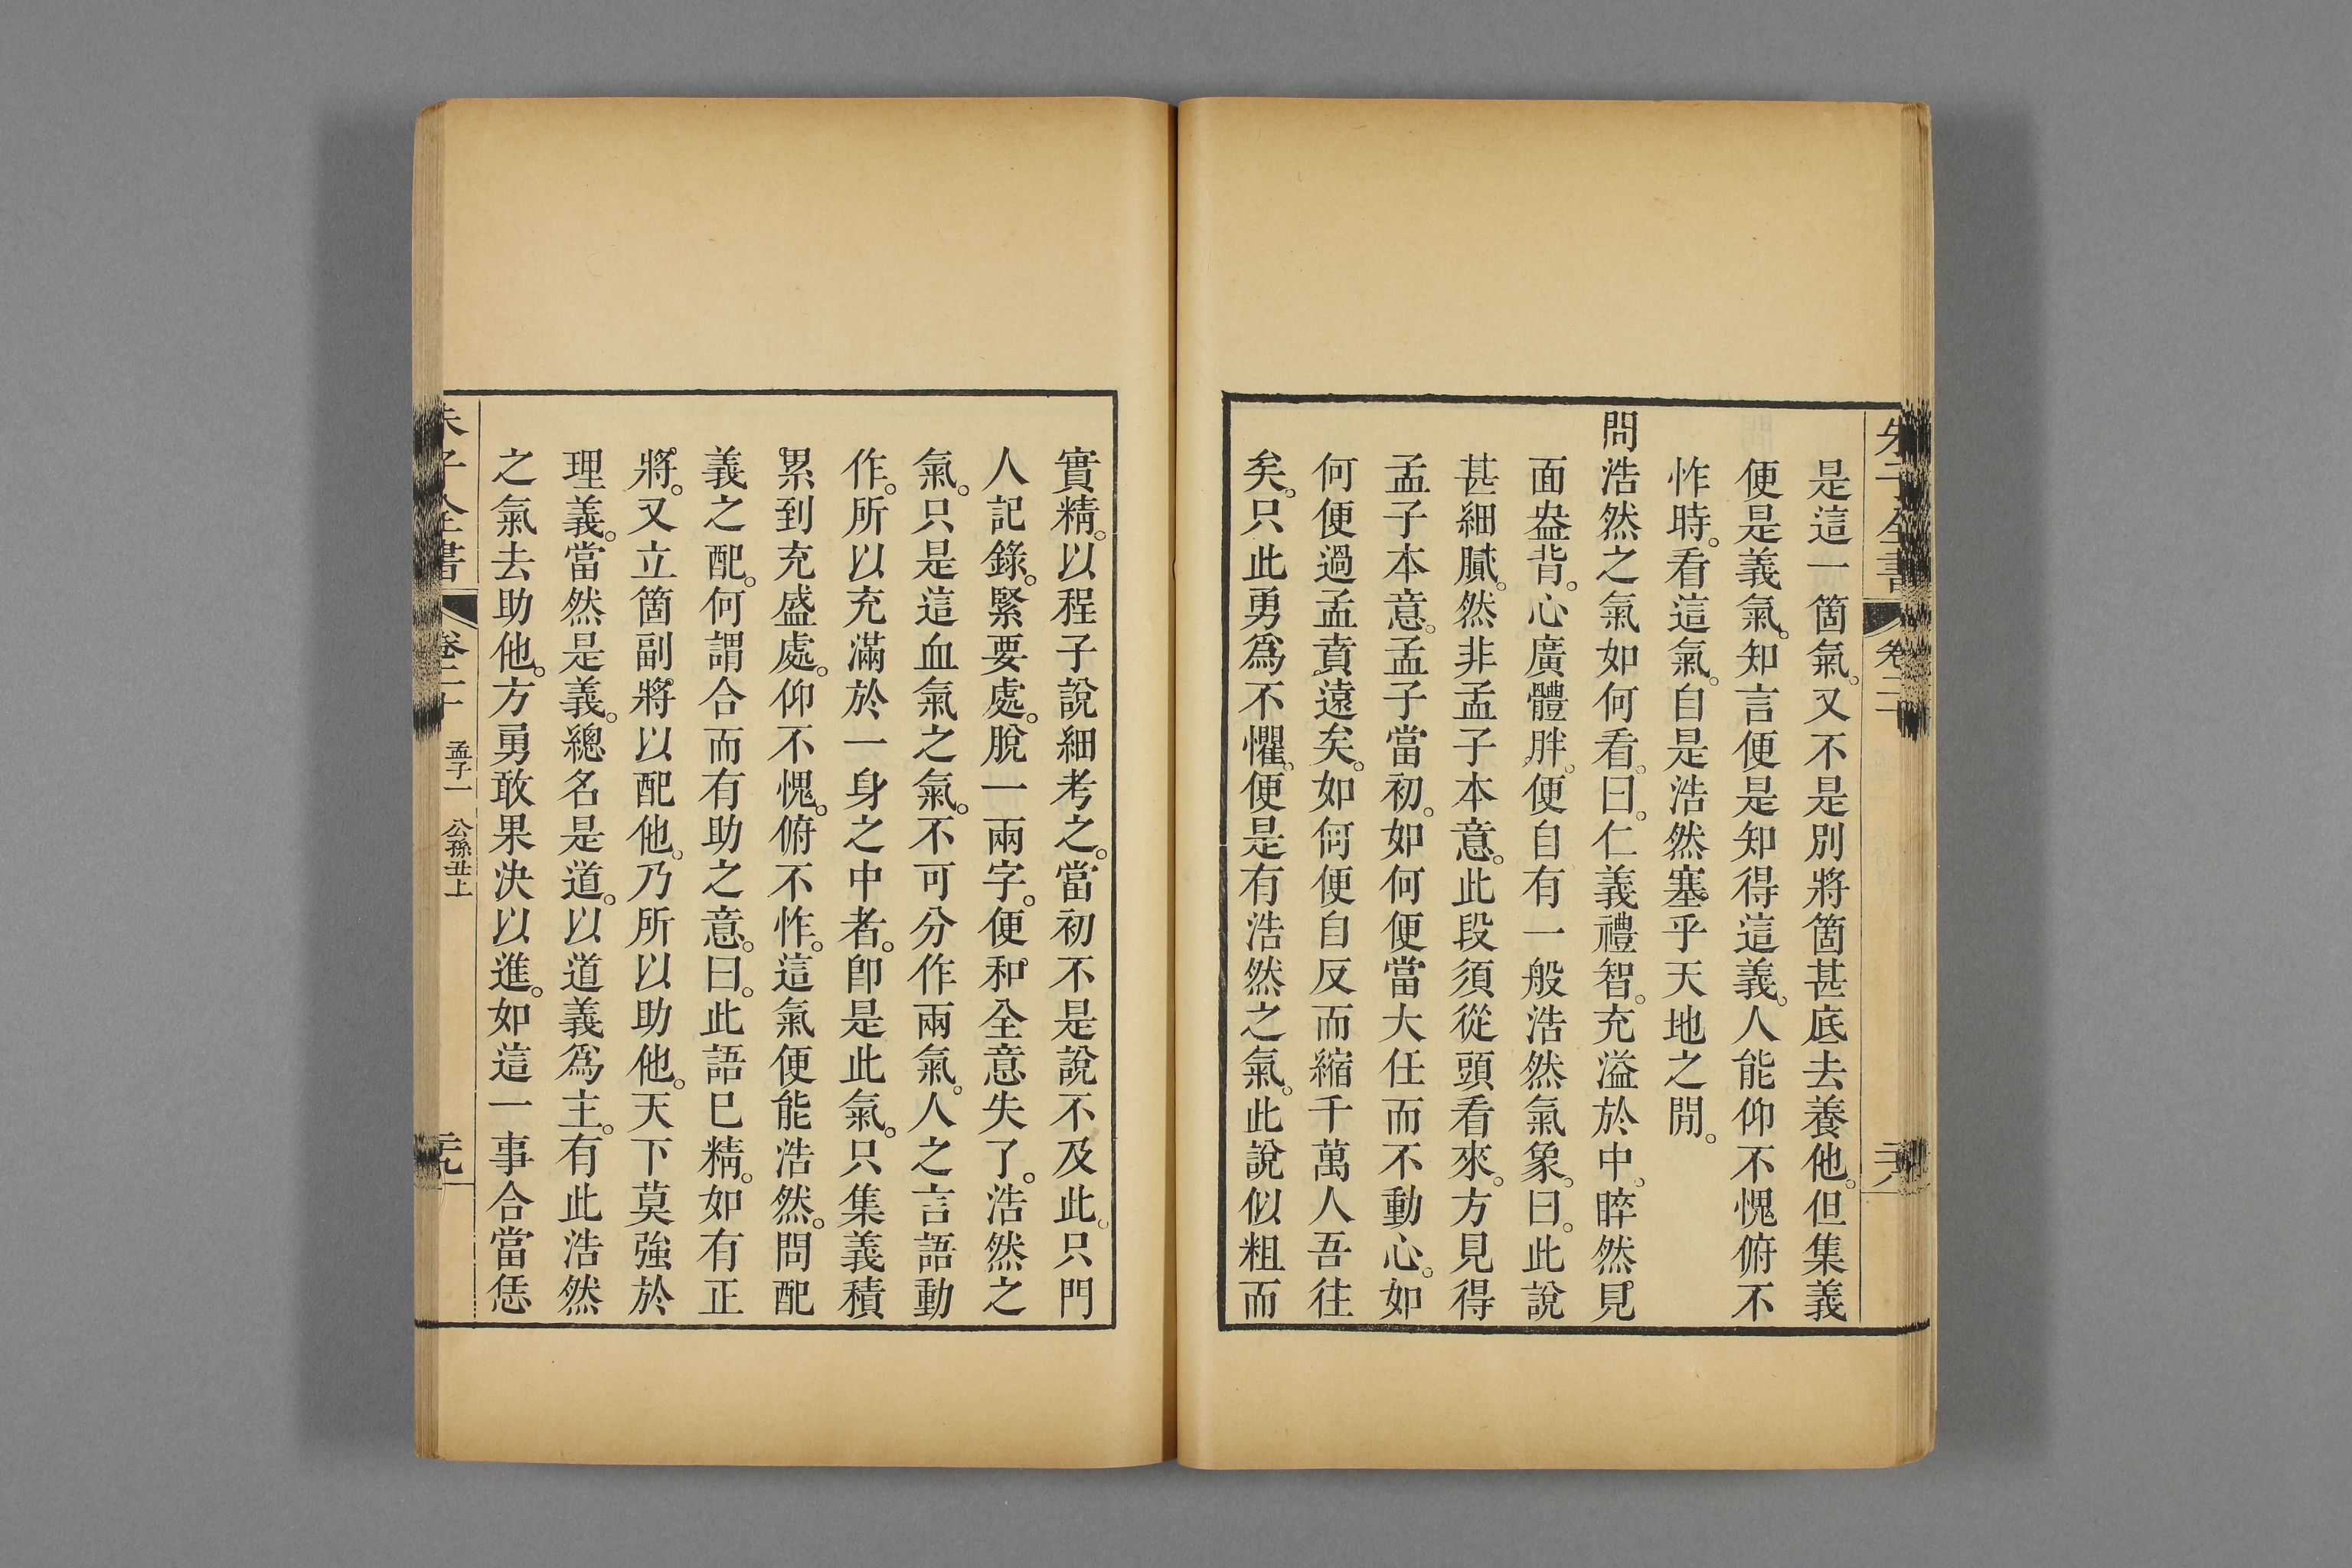 是這一箇氣。又不是別將箇甚底去養他。但集義
便是義氣。知言便是知得這義。人能仰不愧俯不
怍時。看這氣。自是浩然塞乎天地之閒。
問浩然之氣如何看。曰。仁義禮智。充溢於中。睟然見
面盎背。心廣體胖。便自有一般浩然氣象。曰。此說
甚細膩。然非孟子本意。此段須從頭看來。方見得
孟子本意。孟子當初。如何便當大任而不動心。如
何便過孟賁遠矣。如何便自反而縮千萬人吾往
矣。只此勇爲不懼。便是有浩然之氣。此說似粗而
實精。以程子說細考之。當初不是說不及此。只門
人記錄。緊要處。脫一兩字。便和全意失了。浩然之
氣。只是這血氣之氣。不可分作兩氣。人之言語動
作。所以充滿於一身之中者。卽是此氣。只集義積
累到充盛處。仰不愧。俯不怍。這氣便能浩然。問配
義之配。何謂合而有助之意。曰。此語已精。如有正
將。又立箇副將以配他。乃所以助他。天下莫強於
理義。當然是義。總名是道。以道義爲主。有此浩然
之氣去助他。方勇敢果決以進。如這一事合當恁
朱子全書
卷二十
孟子一 公孫丑上